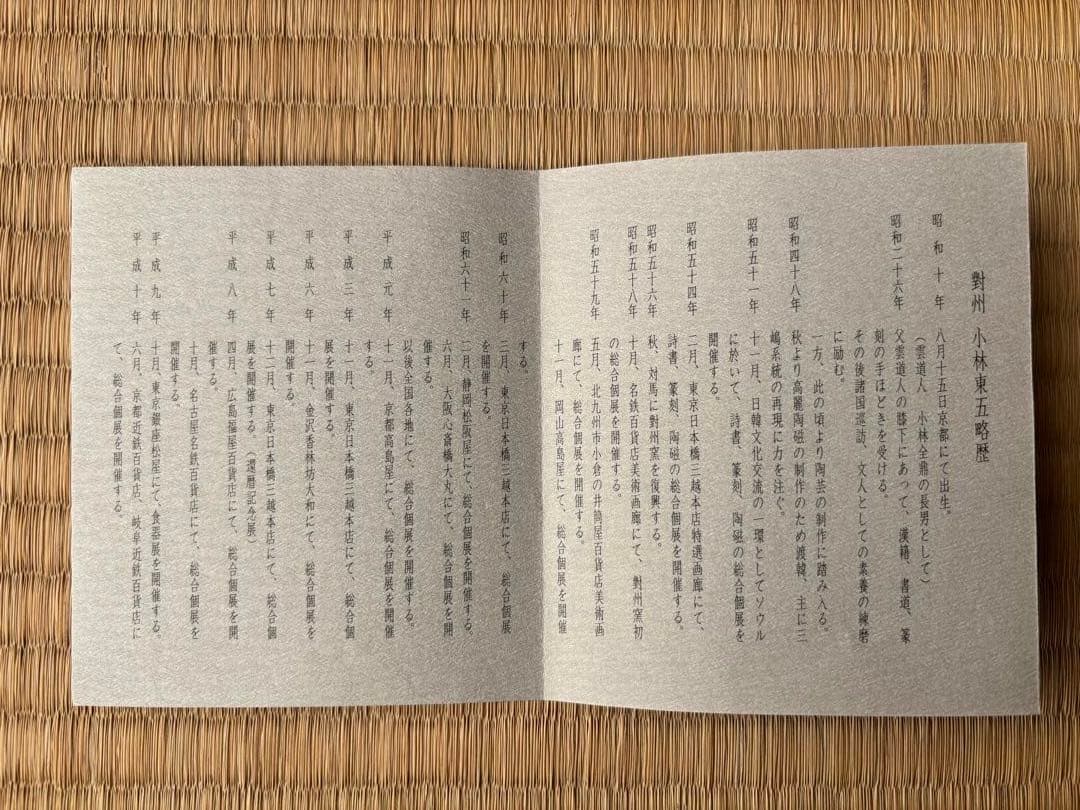 對州 小林東五略歴
昭和十年 八月十五日京都にて出生。
（雲道人 小林全鼎の長男として）
昭和二十六年 父雲道人の膝下にあって、漢籍、書道、篆
刻の手ほどきを受ける。
その後諸国巡訪、文人としての素養の練磨
に励む。
一方、此の頃より陶芸の制作に踏み入る。
昭和四十八年 秋より高麗陶磁の制作のため渡韓、主に三
嶋系統の再現に力を注ぐ。
昭和五十一年 十一月、日韓文化交流の一環としてソウル
に於いて、詩書、篆刻、陶磁の総合個展を
開催する。
昭和五十四年 二月、東京日本橋三越本店特選画廊にて、
詩書、篆刻、陶磁の総合個展を開催する。
昭和五十六年 秋、対馬に對州窯を復興する。
昭和五十八年 十月、名鉄百貨店美術画廊にて、對州窯初
の総合個展を開催する。
昭和五十九年 五月、北九州市小倉の井筒屋百貨店美術画
廊にて、総合個展を開催する。
十一月、岡山高島屋にて、総合個展を開催
する。
昭和六十年 三月、東京日本橋三越本店にて、総合個展
を開催する。
昭和六十一年 二月、静岡松坂屋にて、総合個展を開催する。
六月、大阪心斎橋大丸にて、総合個展を開
催する。
以後全国各地にて、総合個展を開催する。
平成元年 十一月、京都高島屋にて、総合個展を開催
する。
平成三年 十一月、東京日本橋三越本店にて、総合個
展を開催する。
平成六年 十一月、金沢香林坊大和にて、総合個展を
開催する。
平成七年 十二月、東京日本橋三越本店にて、総合個
展を開催する。（還暦記念展）
平成八年 四月、広島福屋百貨店にて、総合個展を開
催する。
十月、名古屋名鉄百貨店にて、総合個展を
開催する。
平成九年 十月、東京銀座松屋にて、食器展を開催する。
平成十年 六月、京都近鉄百貨店、岐阜近鉄百貨店に
て、総合個展を開催する。